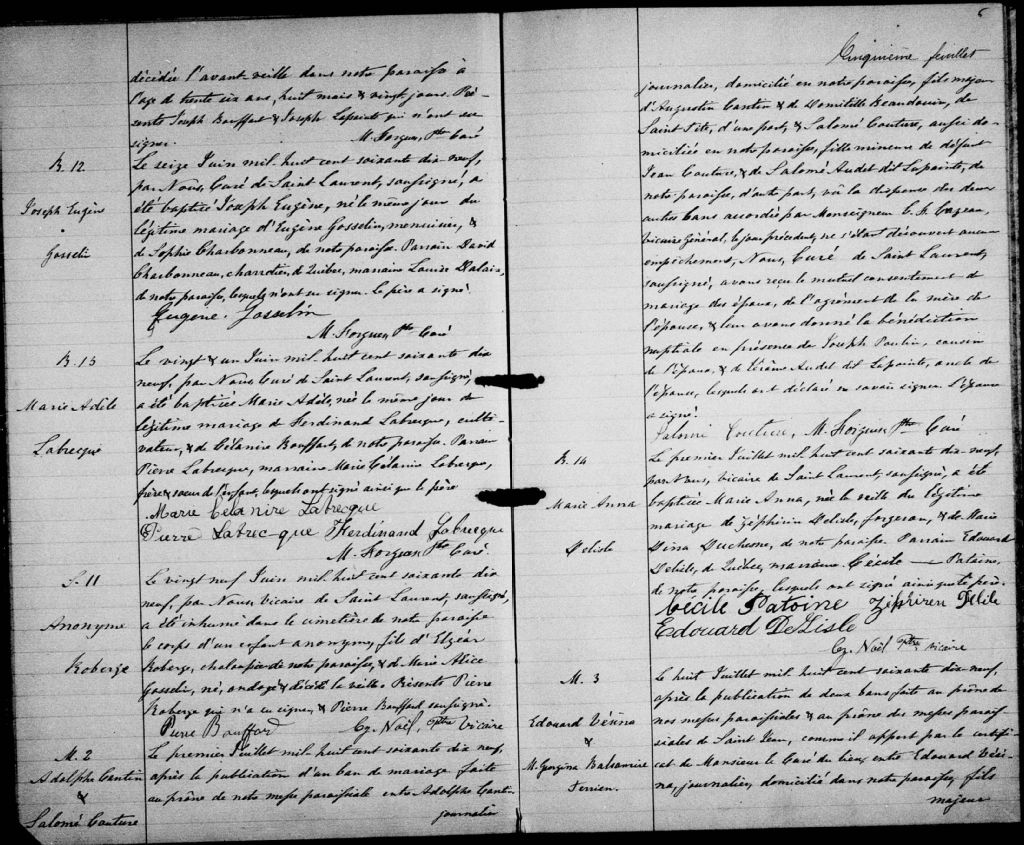 décédée l'avant veille dans notre paroisse à
l'age de trente six ans, huit mois & vingt jours. Pré-
sents Joseph Bouffart & Joseph Lapointe qui n'ont su
signer. M. Forgues, Ptre Curé
B. 12
Joseph Eugène
Gosselin
Le seize Juin mil huit cent soixante dix neuf,
par Nous, Curé de Saint Laurent, soussigné, a
été baptisé Joseph Eugène, né le même jour du
légitime mariage d'Eugène Gosselin, menuisier, &
de Sophie Charbonneau, de notre paroisse. Parrain David
Charbonneau, charretier, de Québec, marraine Louise Dalaire,
de notre paroisse, lesquels n'ont su signer. Le père a signé.
Eugene. Gosselin
M. Forgues, Ptre Curé
B. 13
Marie Adèle
Labrecque
Le vingt & un Juin mil huit cent soixante dix
neuf, par Nous, Curé de Saint Laurent, soussigné,
a été baptisée Marie Adèle, née le même jour du
légitime mariage de Ferdinand Labrecque, culti-
vateur, & de Célanire Bouffart, de notre paroisse. Parrain
Pierre Labrecque, marraine Marie Célanire Laberge,
frère & soeur de l'enfant, lesquels ont signé ainsi que le père
Marie Celanire Labrecque
Pierre Labrecque Ferdinand Labrecque
M. Forgues Ptre Curé.
S. 11
Anonyme
Roberge
Le vingt neuf Juin mil huit cent soixante dix
neuf, par Nous, Vicaire de Saint Laurent, soussigné,
a été inhumé dans le cimetière de notre paroisse
le corps d'un enfant anonyme, fils d'Elzéar
Roberge, chaloupier de notre paroisse, & de Marie Alice
Gosselin, né, ondoyé & décédé la veille. Présents Pierre
Roberge qui n'a su signer, & Pierre Bouffard soussigné.
Pierre Bouffard Cy. Noël, Ptre Vicaire
M. 2
Adolphe Cantin
&
Salomé Couture
Le premier Juillet mil huit cent soixante dix neuf,
après la publication d'un ban de mariage faite
au prône de notre messe paroissiale entre Adolphe Cantin
journalier
6
Cinquième feuillet
journalier, domicilié en notre paroisse, fils majeur
d'Augustin Cantin & de Domitilde Beaudouin, de
Saint Tite, d'une part, & Salomé Couture, aussi do-
miciliée en notre paroisse, fille mineure de défunt
Jean Couture, & de Salomé Audet dit Lapointe, de
notre paroisse, d'autre part, vu la dispense des deux
autres bans accordée par Monseigneur C. F. Cazeau,
Vicaire Général, le jour précédent, ne s'étant découvert aucun
empêchement, Nous, Curé de Saint Laurent,
soussigné, avons reçu le mutuel consentement de
mariage des époux, de l'agrément de la mère de
l'épouse, & leur avons donné la bénédiction
nuptiale en présence de Joseph Poulin, cousin
de l'époux, & de Audet dit Lapointe, oncle de
l'épouse, lesquels ont déclaré ne savoir signer. L'épouse
a signé.
Salomé Couture, M. Forgues Ptre Curé
B. 14
Marie Anna
Delisle
Le premier Juillet mil huit cent soixante dix neuf,
par Nous, vicaire de Saint Laurent, soussigné, a été
baptisée Marie Anna, née la veille du légitime
mariage de Zéphirin Delisle, forgeron, & de Marie
Dina Duchesne, de notre paroisse. Parrain Edouard
Delisle, de Québec, marraine Cécile — Patoine,
de notre paroisse, lesquels ont signé ainsi que le père.
Cécile Patoine Ziphiren Delile
Edouard DeLisle
Cy. Noël Ptre vicaire
M. 3
Edouard Vézina
&
M. Georgina Balsamire
Terrien.
Le huit Juillet mil huit cent soixante dix neuf,
après la publication de deux bans faite au prône de
nos messes paroissiales & au prône des messes parois-
siales de Saint Jean, comme il appert par le certifi-
cat de Monsieur le Curé du lieu, entre Edouard Vézi-
na, journalier, domicilié dans notre paroisse, fils
majeur